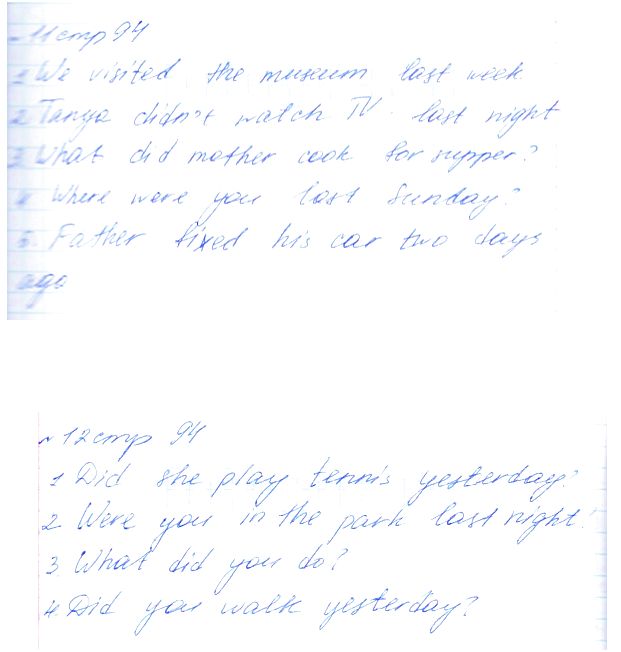 №11 стр 94
1 We visited the museum last week
2 Tanya didn't watch TV last night
3 What did mother cook for supper?
4 Where were you last Sunday?
5. Father fixed his car two days
ago
№12 стр 94
1 Did she play tennis yesterday?
2 Were you in the park last night?
3 What did you do?
4 Did you walk yesterday?